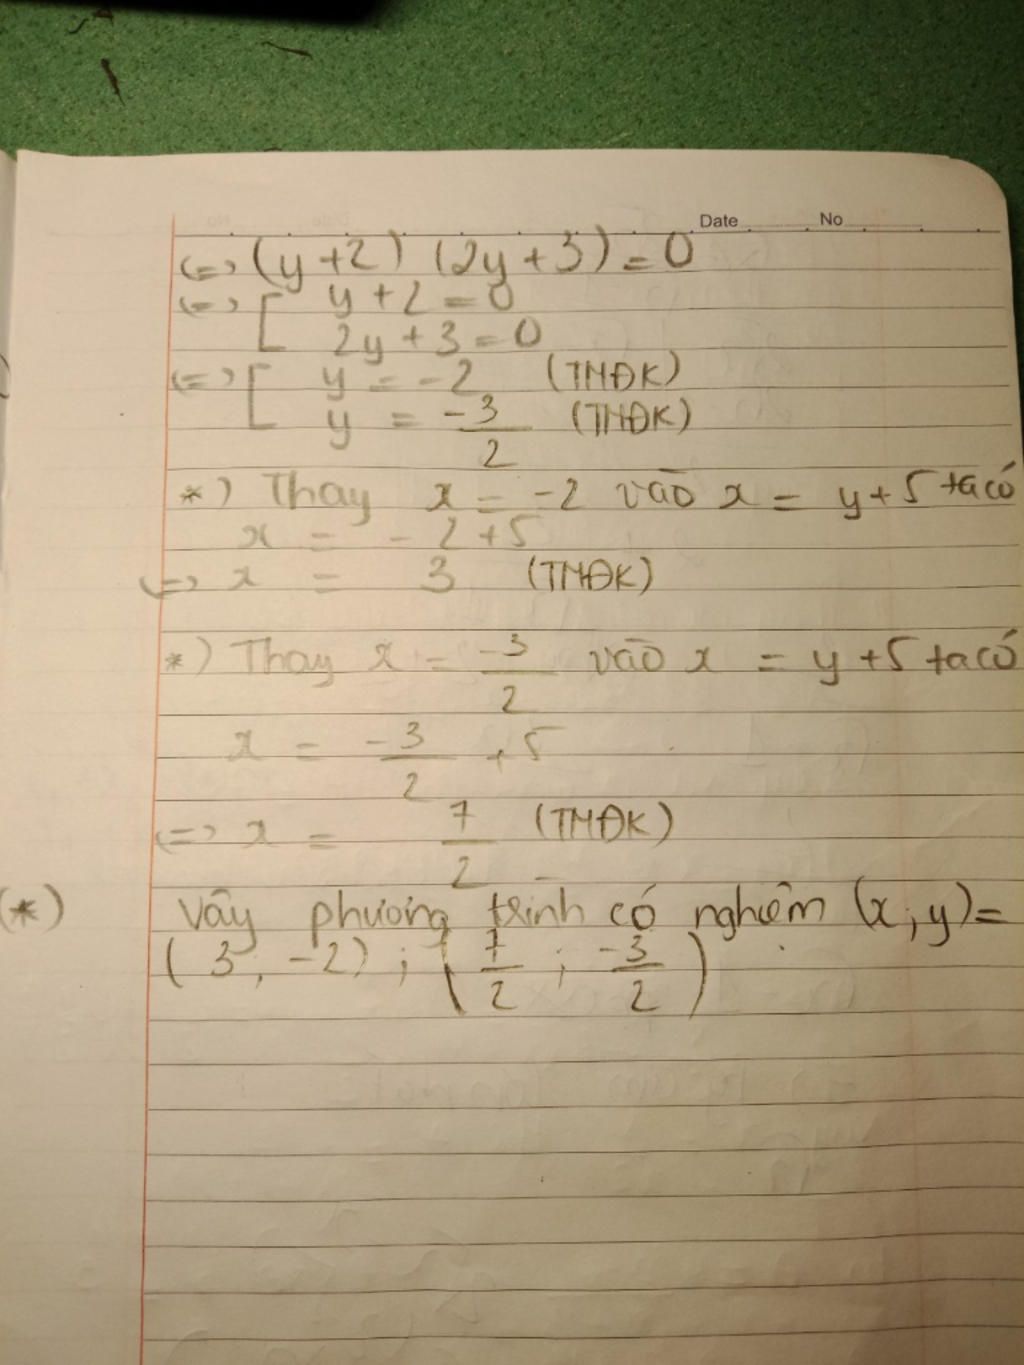 Date No
<=> (y + 2) (2y + 3) = 0
<=> [ y + 2 = 0
2y + 3 = 0
<=> [ y = -2 (TMĐK)
y = -3/2 (TMĐK)
*) Thay x = -2 vào x = y + 5 ta có
x = -2 + 5
<=> x = 3 (TMĐK)
*) Thay x = -3/2 vào x = y + 5 ta có
x = -3/2 + 5
<=> x = 7/2 (TMĐK)
(*) vây phương trinh có nghiêm (x; y) =
(3; -2); (7/2; -3/2)